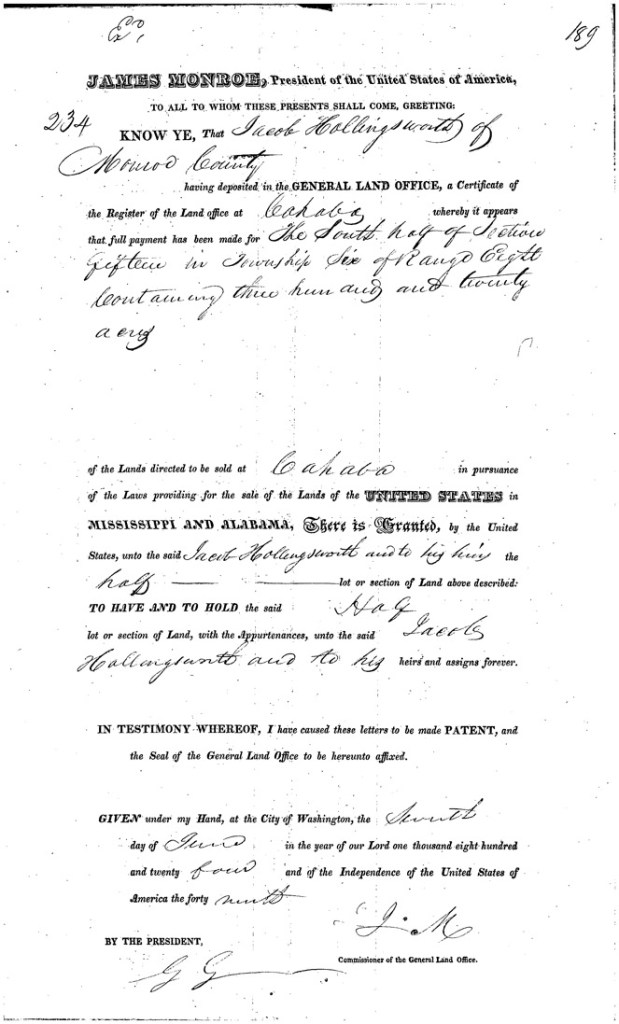 Ex,
189
JAMES MONROE, President of the United States of America,
TO ALL TO WHOM THESE PRESENTS SHALL COME, GREETING:
234
KNOW YE, That Jacob Hollingsworth of
Monroe County
having deposited in the GENERAL LAND OFFICE, a Certificate of
the Register of the Land office at Cahaba whereby it appears
that full payment has been made for The South half of Section
fifteen in Township Six of Range Eight
Containing three hundred and twenty
acres
of the Lands directed to be sold at Cahaba in pursuance
of the Laws providing for the sale of the Lands of the UNITED STATES in
MISSISSIPPI AND ALABAMA, There is Granted, by the United
States, unto the said Jacob Hollingsworth and to his heirs the
half lot or section of Land above described:
TO HAVE AND TO HOLD the said Half
lot or section of Land, with the Appurtenances, unto the said Jacob
Hollingsworth and to his heirs and assigns forever.
IN TESTIMONY WHEREOF, I have caused these letters to be made PATENT, and
the Seal of the General Land Office to be hereunto affixed.
GIVEN under my Hand, at the City of Washington, the
day of June in the year of our Lord one thousand eight hundred
and twenty four and of the Independence of the United States of
America the forty ninth
J. M
BY THE PRESIDENT,
G G
Commissioner of the General Land Office.